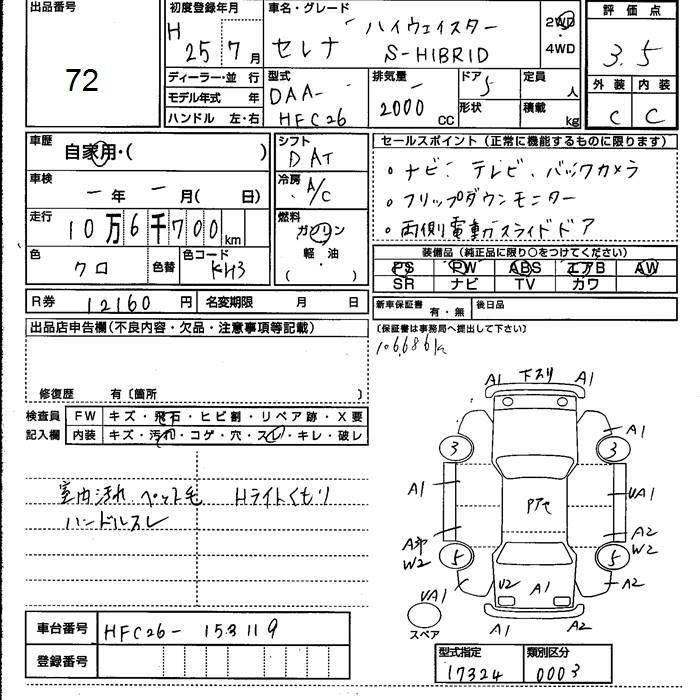 出品番号
72
初度登録年月
H 25年 7月
車名・グレード
セレナ ハイウェイスター
S-HIBRID
2WD
4WD
評価点
3.5
外装 内装
C C
ディーラー・並 行
モデル年式 年
ハンドル 左・右
型式
DAA-
HFC26
排気量
2000 cc
ドア
5
形状
定員
人
積載
kg
車歴
自家用・( )
車検
ー年ー月( 日)
走行
10万6千700km
色
クロ
色替
色コード
KH3
シフト
DAT
冷房
A/C
燃料
ガソリン
軽・油
( )
セールスポイント(正常に機能するものに限ります)
。ナビ、テレビ、バックカメラ
。フリップダウンモニター
。両側電動スライドドア
装備品(純正品に限り○をつけてください)
PS PW ABS エアB AW
SR ナビ TV カワ
R券 12160円 名変期限 月 日
新車保証書 有・無 後日品
(保証書は事務局へ提出して下さい)
出品店申告欄(不良内容・欠品・注意事項等記載)
106,686km
修復歴 有〔箇所 〕
検査員 FW キズ・飛石・ヒビ割・リペア跡・X要
記入欄 内装 キズ・汚れ・コゲ・穴・スレ・キレ・破レ
室内汚れ ペット毛 Hライトくもり
ハンドルスレ
A1 下スリ A1
3 3 A1
A1 UA1
A2
W2 5 5 W2
UA1 U2 A1 A2
A1 A2
スペア
車台番号 HFC26- 153119
登録番号
型式指定 類別区分
17324 0003